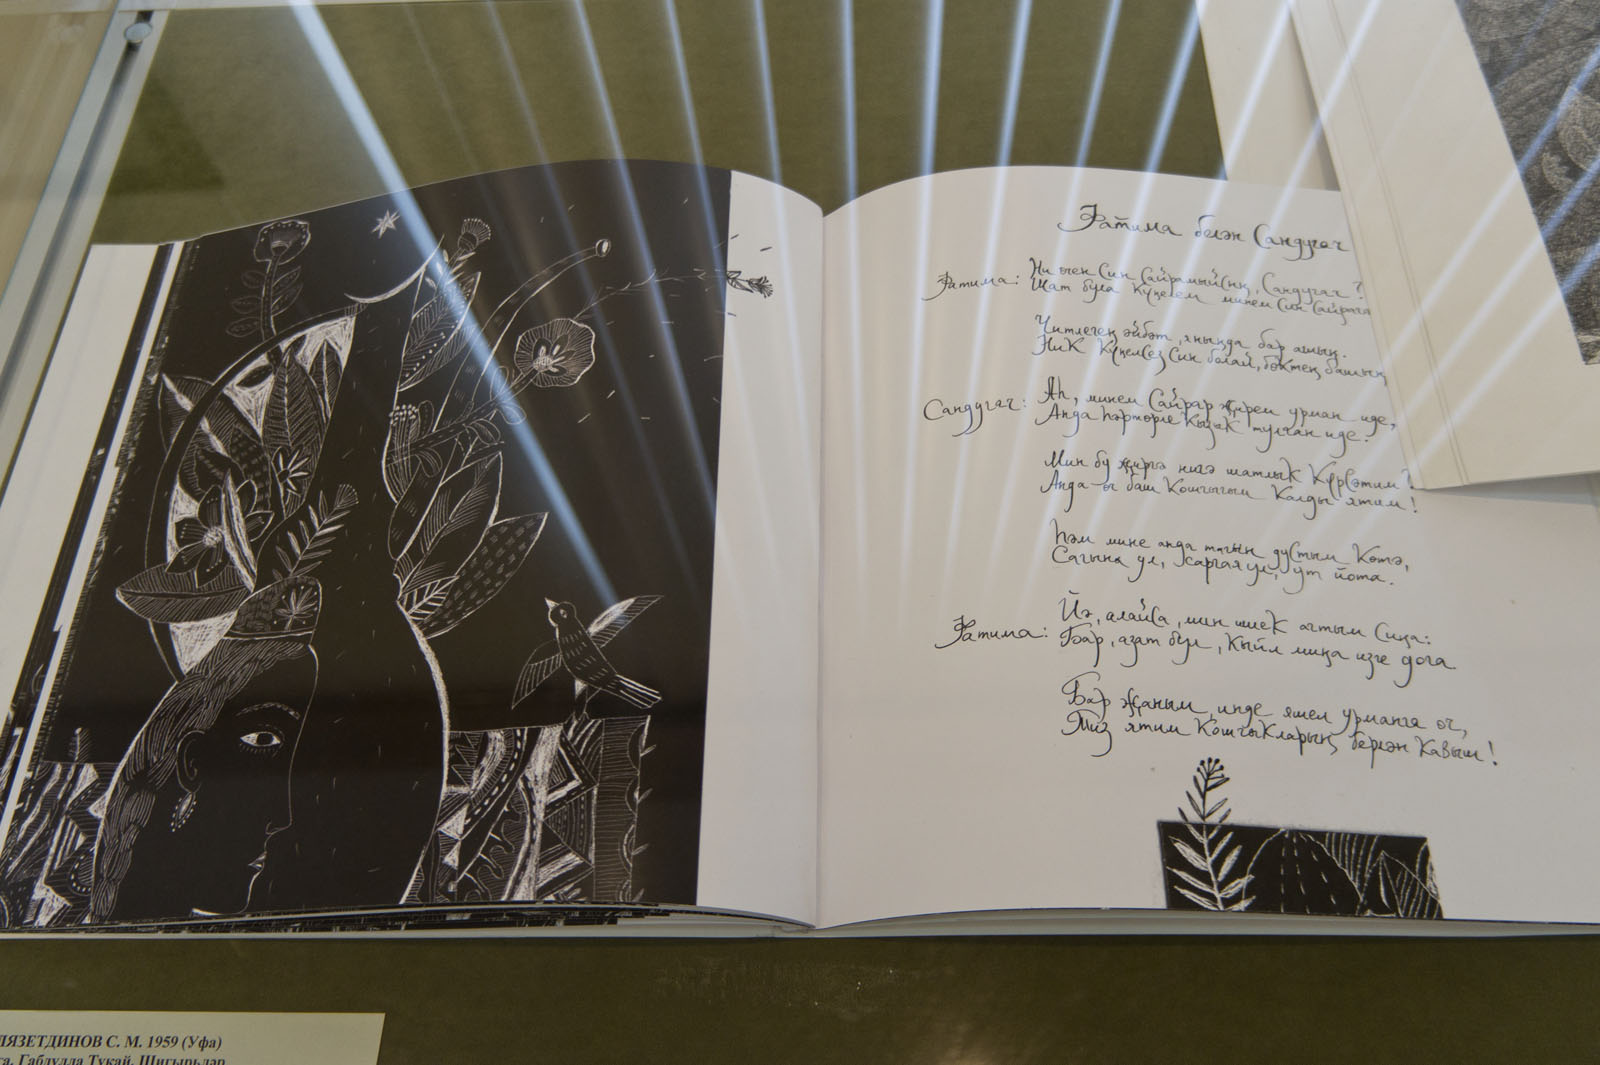 Фатима белән Сандугач
Фатима: Ни өчен син сайрамыйсың, Сандугач?
Шат була күңелем минем син сайрагач
Читлегең әйбәт, яныңда бар ашың.
Ник күңелсез син болай, бөктең башың
Сандугач: Аһ, минем сайрар җирем урман иде,
Анда һәртөрле кызык тулган иде.
Мин бу җиргә нигә шатлык күрсәтим?
Анда өч баш кошчыгым калды ятим!
Һәм мине анда тагын дустым көтә,
Сагына ул, саргая ул, ут йота.
Фатима: Йә, алайса, мин ишек ачтым сиңа:
Бар, азат бул, кыйл миңа изге дога
Бар җаным, инде яшел урманга оч,
Тиз ятим кошчыкларың берлән кавыш!
ЛЯЗЕТДИНОВ С. М. 1959 (Уфа)
Габдулла Тукай. Шигырьләр